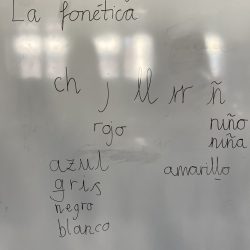 La fonética
ch j ll rr ñ
rojo
niño
niña
azul
amarillo
gris
negro
blanco